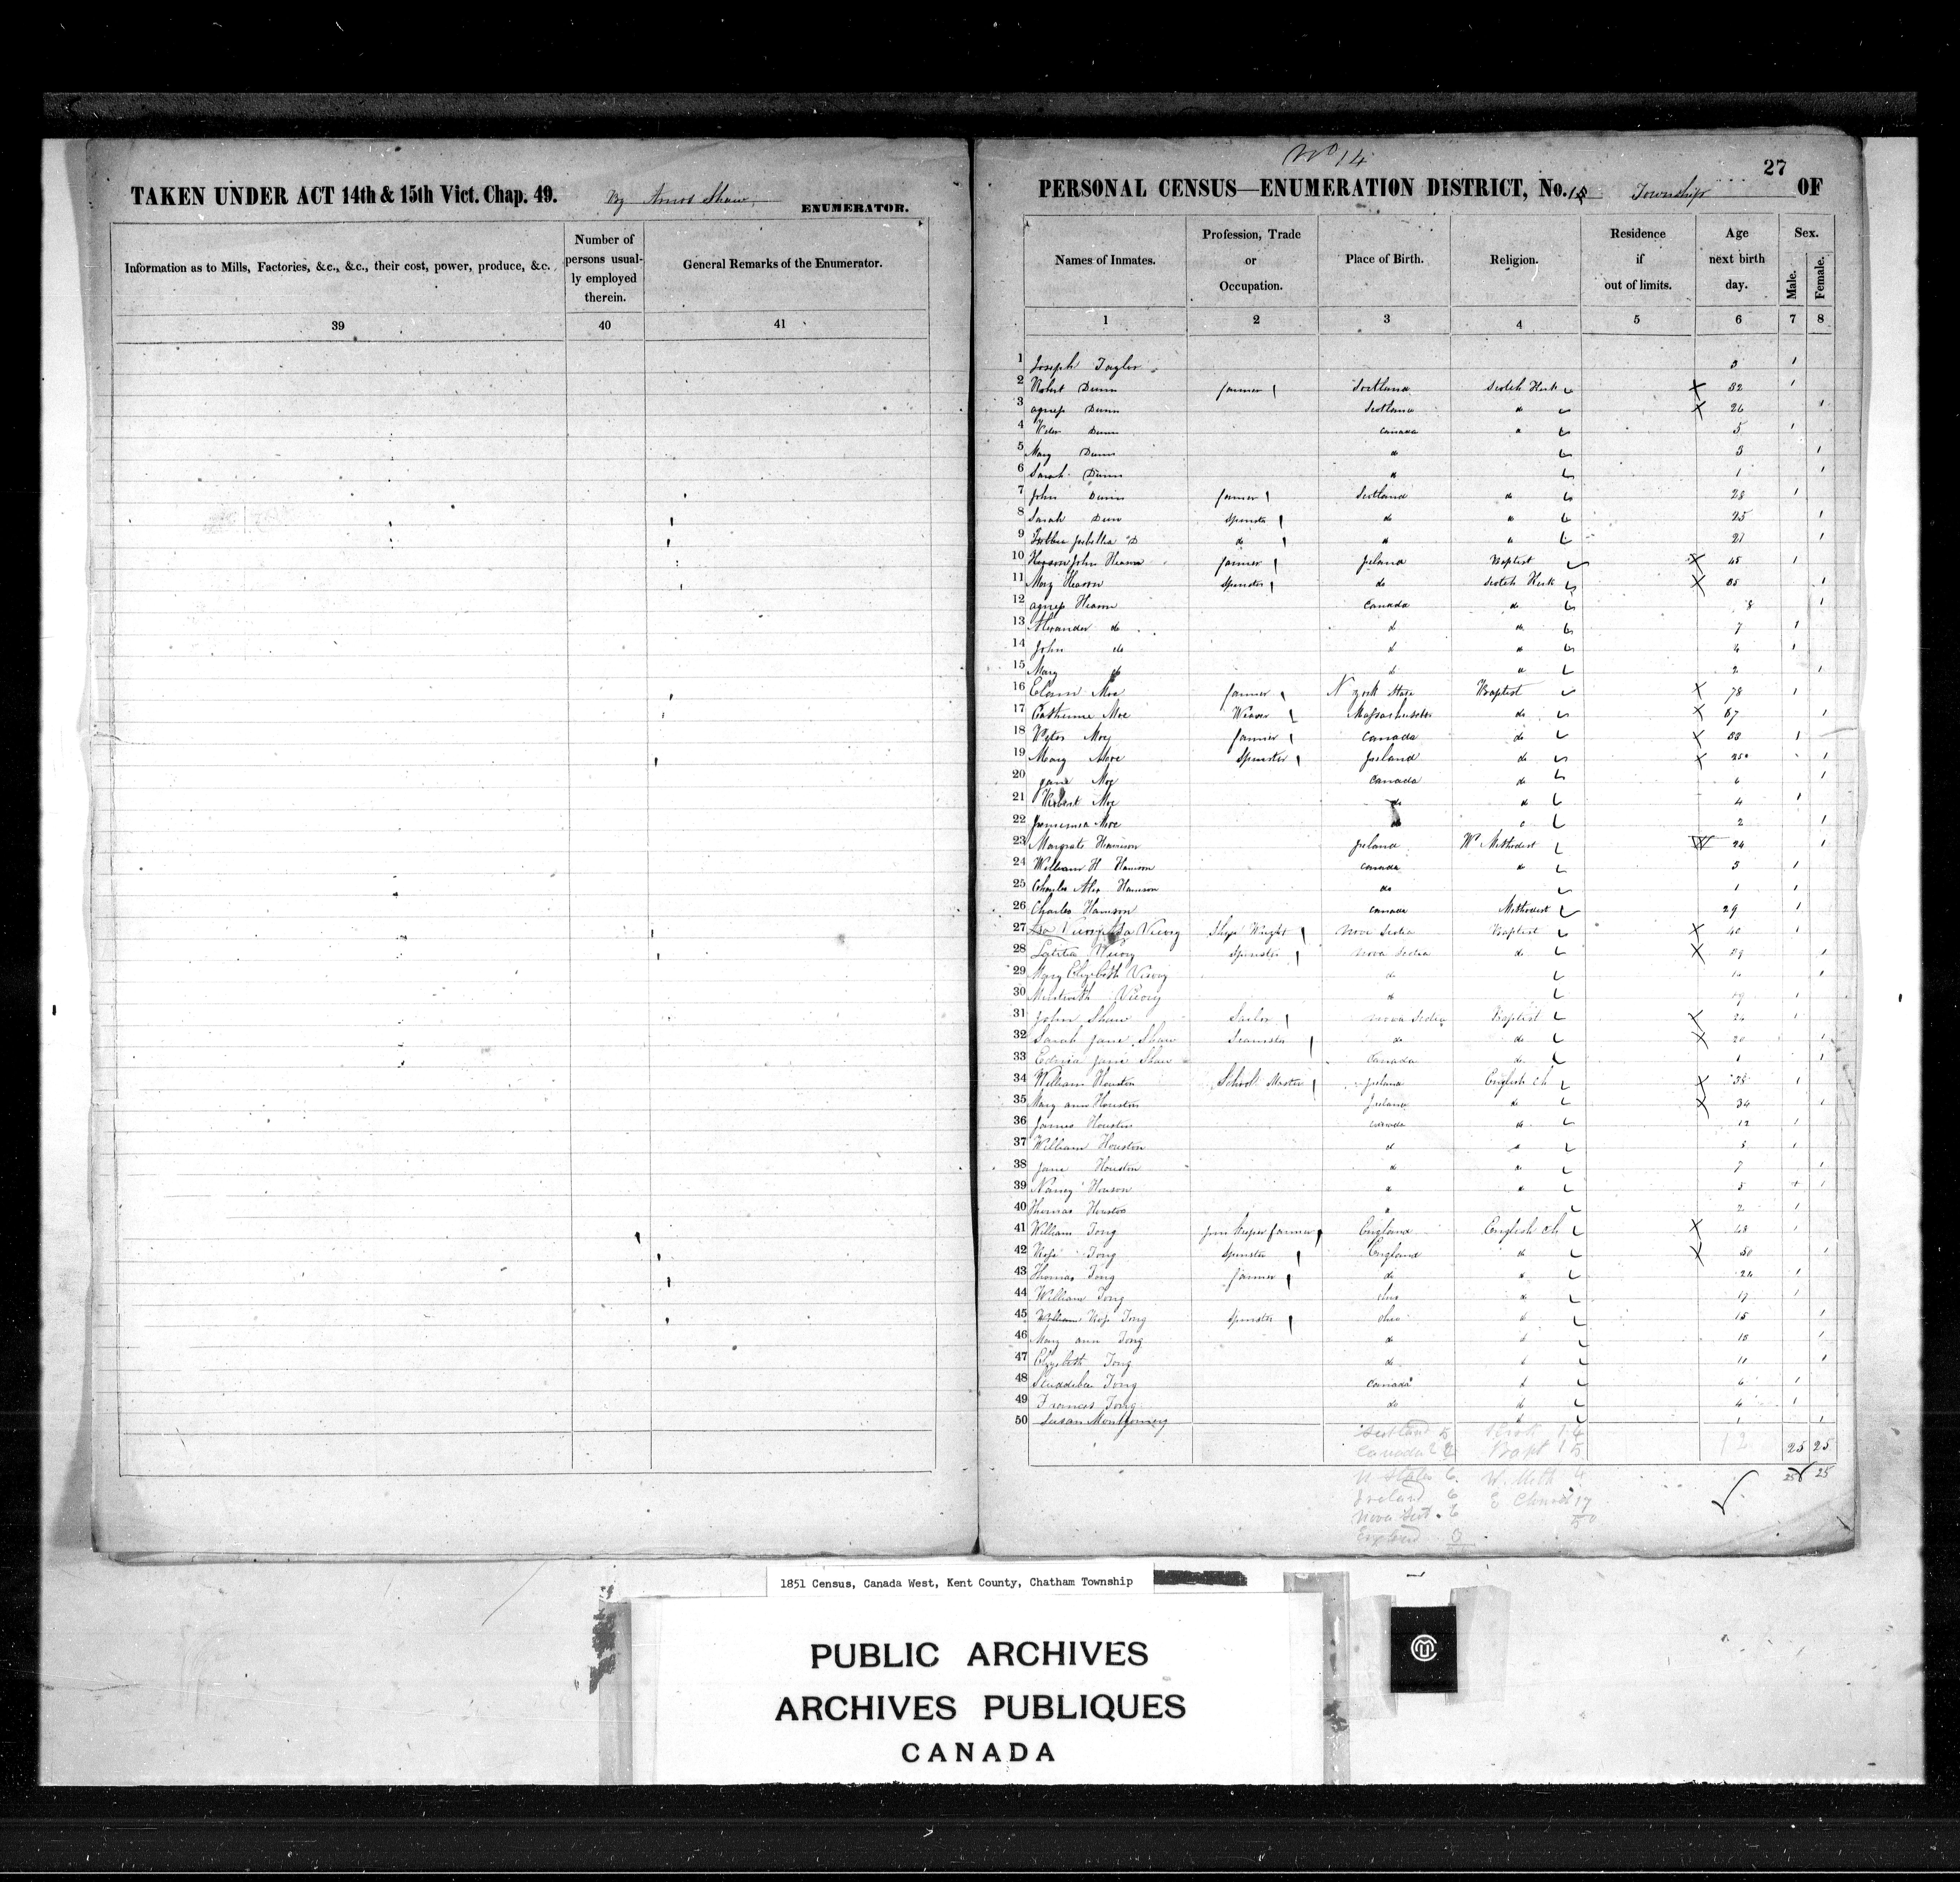 TAKEN UNDER ACT 14th & 15th Vict. Chap. 49. By Amos Shaw, ENUMERATOR.
Information as to Mills, Factories, &c., &c., their cost, power, produce, &c.
Number of persons usually employed therein.
General Remarks of the Enumerator.
39 40 41
No 14
27
PERSONAL CENSUS—ENUMERATION DISTRICT, No. Township OF
Names of Inmates. Profession, Trade or Occupation. Place of Birth. Religion. Residence if out of limits. Age next birth day. Sex. Male. Female.
1 2 3 4 5 6 7 8
1 Joseph Taylor 3 1
2 Robert Dunn farmer Scotland Scotch Kirk 32 1
3 agness Dunn Scotland do 26 1
4 Peter Dunn Canada 5 1
5 Mary Dunn 3 1
6 Sarah Dunn 1 1
7 John Dunn farmer Scotland do 28 1
8 Sarah Dunn Spinster do 25 1
9 Isabella D do 21 1
10 John Hearon farmer Ireland Baptist 45 1
11 Mary Hearon Spinster do Scotch Kirk 35 1
12 agness Hearon Canada do 8 1
13 Alexander do 7 1
14 John do 4 1
15 Mary do 2 1
16 Moe farmer N york State Baptist 78 1
17 Catherine Moe Weaver Massachusetts do 67 1
18 Peter Moe farmer Canada do 33 1
19 Mary Moe Spinster Ireland do 25 1
20 jane Moe Canada do 6 1
21 Robert Moe do 4 1
22 Jemimia Moe do 2 1
23 Margrate Harrison Ireland Ws Methodist 24 1
24 William H Harrison Canada 3 1
25 Charles Alex Harrison do 1 1
26 Charles Harrison Canada Methodist 29 1
27 Asa Vicory Ship Wright Nova Scotia Baptist 40 1
28 Letitia Vicory Spinster Nova Scotia do 39 1
29 Mary Elizebeth Vicory do 1
30 Vicory do 1
31 John Shaw Sailor Nova Scotia Baptist 1
32 Sarah Jane Shaw do do 20 1
33 Jane Shaw Canada do 1 1
34 William Houston School Master Ireland English Ch 38 1
35 Mary ann Houston Ireland do 34 1
36 James Houston Canada do 12 1
37 William Houston 1
38 Jane Houston 7 1
39 Nancy Houson 5 1
40 Thomas Houston 2 1
41 William Tong Inn Keeper farmer England English ch 48 1
42 Tong Spinster England do 50 1
43 Thomas Tong farmer do 24 1
44 William Tong 17 1
45 Tong Spinster Ohio 15 1
46 Mary ann Tong do 13 1
47 Elizebeth Tong do 11 1
48 Tong Canada 6 1
49 Frances Tong do 4 1
50 Susan Montgomery 1 1
Scotland 5 Kirk 14
Canada 22 Bapt 15 25 25
U States 6 W. Meth 4 25 25
Ireland 6 E Church 17
Nova Scot. 6 50
England 3
1851 Census, Canada West, Kent County, Chatham Township
PUBLIC ARCHIVES
ARCHIVES PUBLIQUES
CANADA